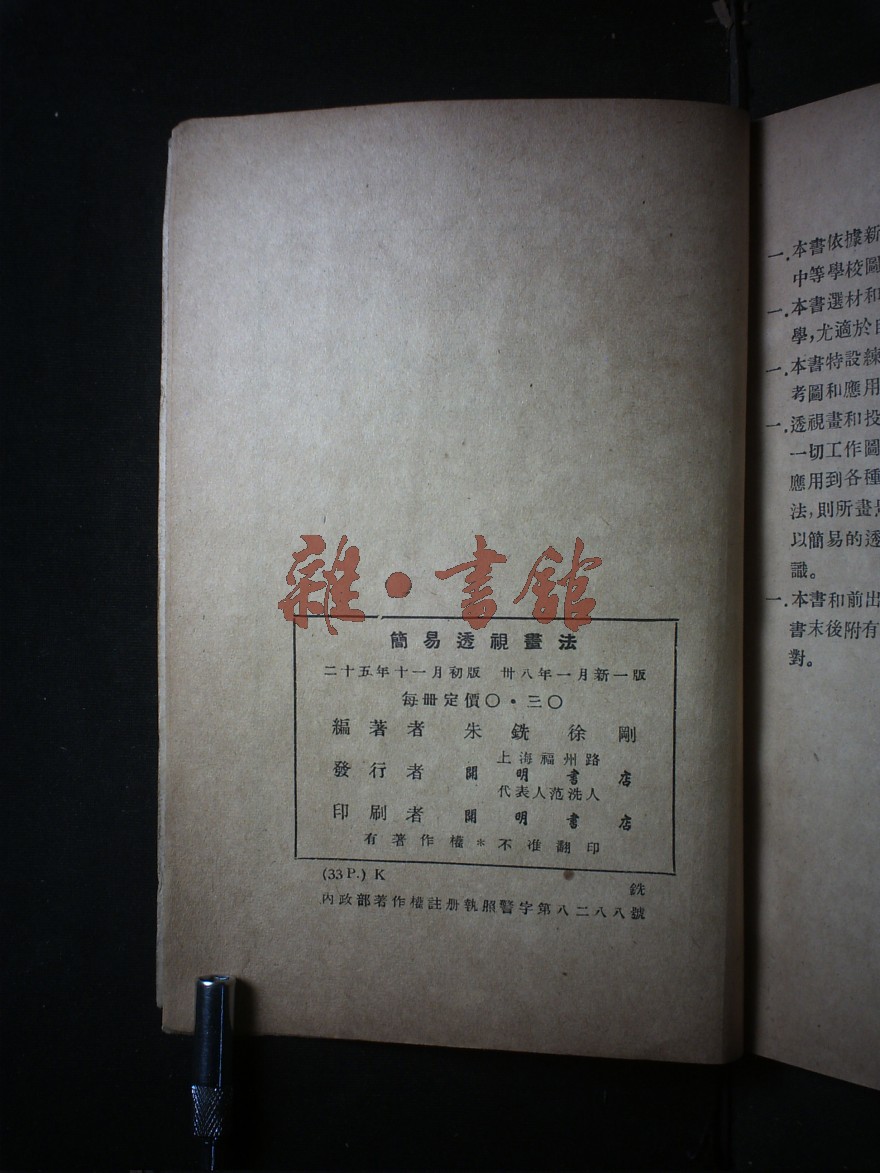 雜•書館
簡易透視畫法
二十五年十一月初版 卅八年一月新一版
每册定價〇·三〇
編著者 朱銑 徐剛
發行者 上海福州路 開明書店 代表人范洗人
印刷者 開明書店
有著作權*不准翻印
(33P.) K 銑
內政部著作權註册執照警字第八二八八號
一.本書依據新
中等學校圖
一.本書選材和
學,尤適於
一.本書特設練
考圖和應用
一.透視畫和投
一切工作圖
應用到各種
法,則所畫
以簡易的透
識。
一.本書和前出
書末後附有
對。